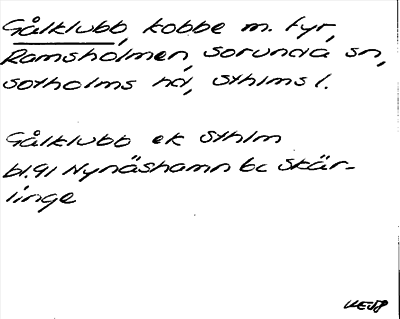 Gålklubb, kobbe m. fyr,
Ramsholmen, Sorunda sn,
Sotholms hd, Sthlms l.
Gålklubb ek Sthlm
bl.91 Nynäshamn bc Skär-
linge